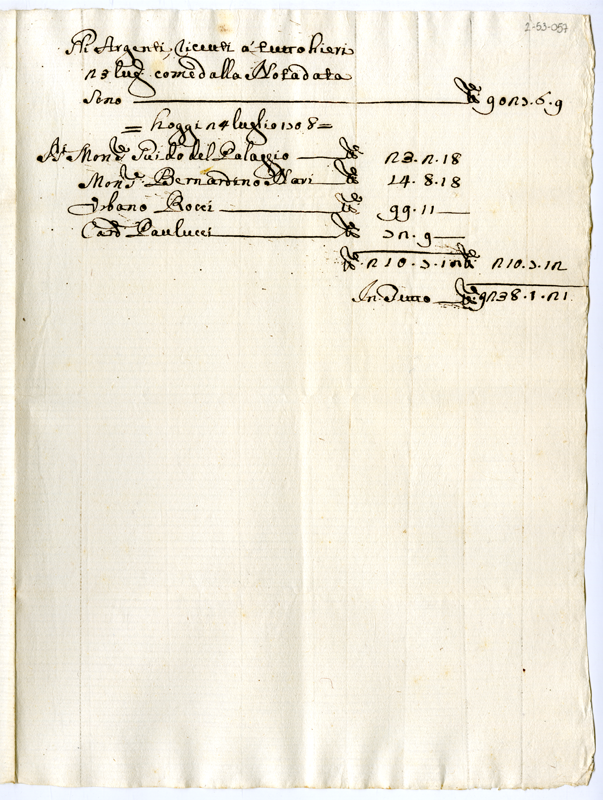 2-53-057
Gli Argenti ricevuti a' tutto hieri
23 lug. come dalla Nota data
sono — lb 9027.6.9
= hoggi 24 luglio 1708 =
Mons.r Guido del Palaggio — lb 23.2.18
Mons.r Bernardino Nari — lb 14.8.18
Urbano Rocci — lb 99.11 —
Card. Paulucci — lb 72.9 —
lb 210.7.12 lb 210.7.12
In Tutto — lb 9238.1.21